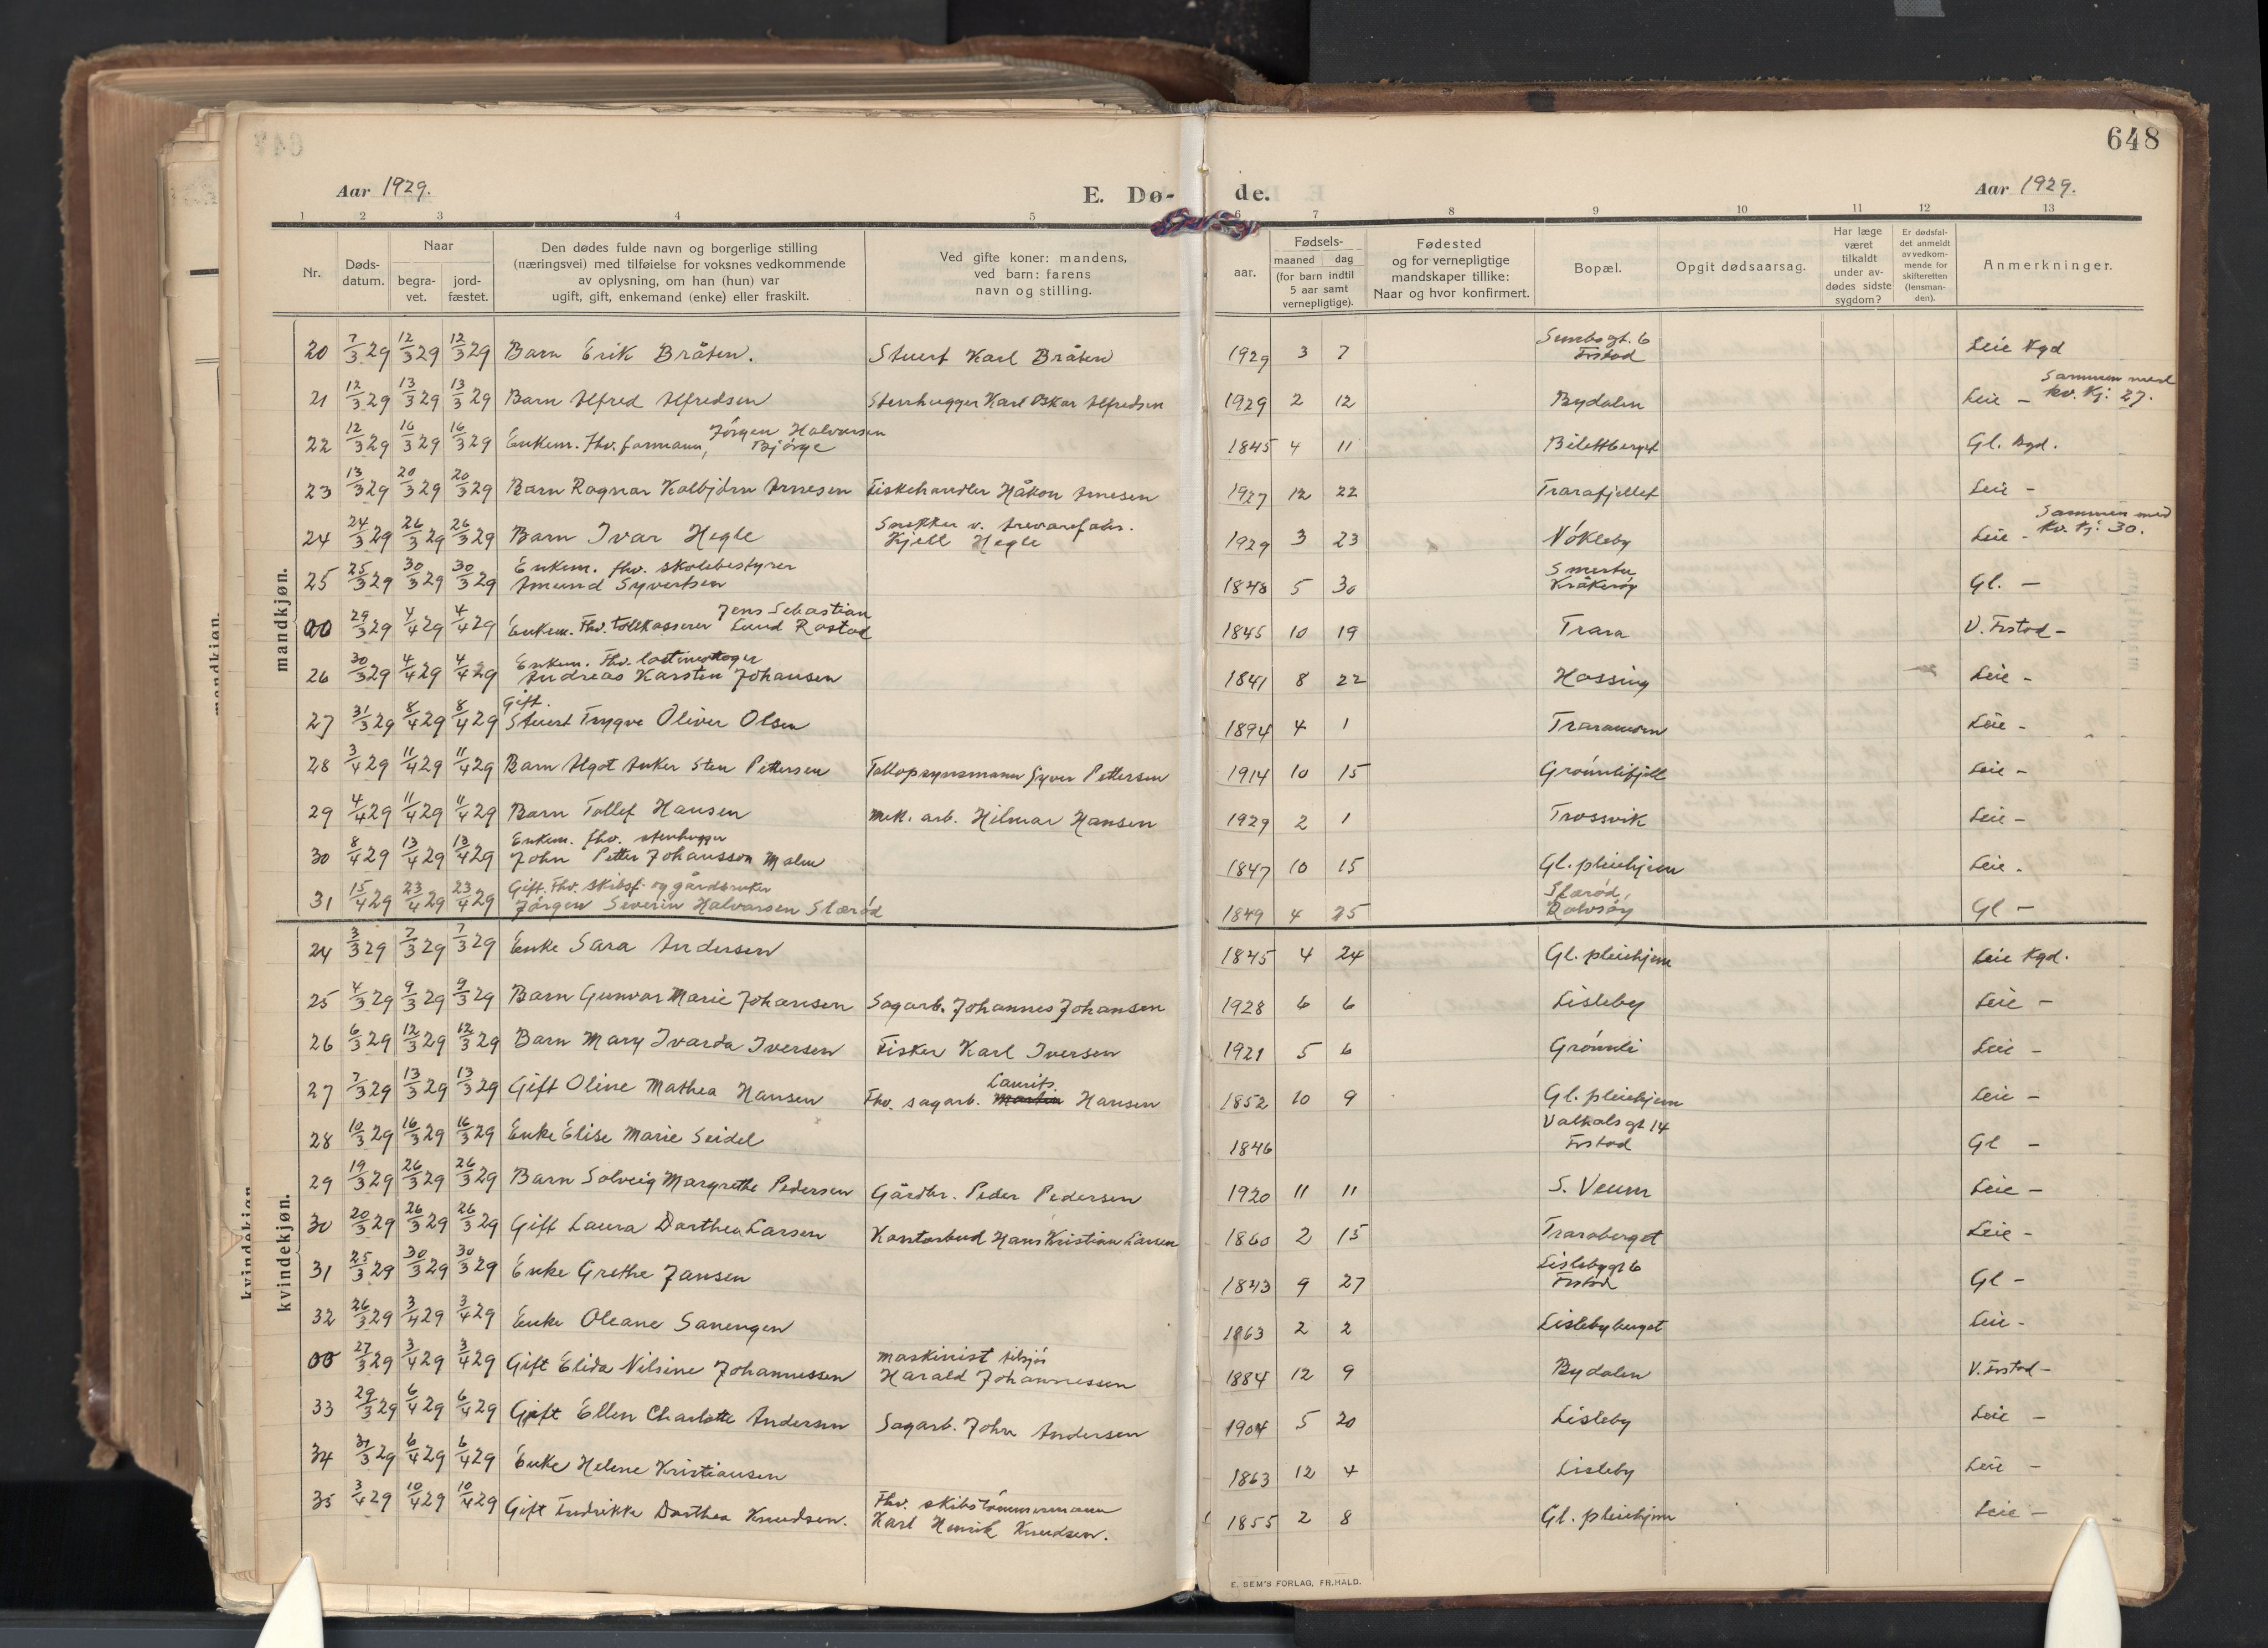 648
Aar 1929.
E. Dø- de.
Aar 1929.
1 2 3 4 5 6 7 8 9 10 11 12 13
Nr.
Døds-
datum.
Naar
begra-
vet.
jord-
fæstet.
Den dødes fulde navn og borgerlige stilling
(næringsvei) med tilføielse for voksnes vedkommende
av oplysning, om han (hun) var
ugift, gift, enkemand (enke) eller fraskilt.
Ved gifte koner: mandens,
ved barn: farens
navn og stilling.
aar.
Fødsels-
maaned dag
(for barn indtil
5 aar samt
vernepligtige).
Fødested
og for vernepligtige
mandskaper tillike:
Naar og hvor konfirmert.
Bopæl.
Opgit dødsaarsag.
Har læge
været
tilkaldt
under av-
dødes sidste
sygdom?
Er dødsfal-
det anmeldt
av vedkom-
mende for
skifteretten
(lensman-
den).
Anmerkninger.
mandkjøn.
20 7/3 29 12/3 29 12/3 29 Barn Erik Bråten. Stuert Karl Bråten 1929 3 7 gt. 6 Frstad Leie Kgd
21 12/3 29 13/3 29 13/3 29 Barn Alfred Alfredsen Stenhugger Karl Oskar Alfredsen 1929 2 12 Bydalen Leie – Sammen med kv. kj: 27.
22 12/3 29 16/3 29 16/3 29 Enkem. Fhv. formann, Jörgen Halvorsen Bjørge 1845 4 11 Bilettberget Gl. Kgd.
23 13/3 29 20/3 29 20/3 29 Barn Ragnar Kolbjörn Arnesen Fiskehandler Håkon Arnesen 1927 12 22 Trarafjellet Leie –
24 24/3 29 26/3 29 26/3 29 Barn Ivar Hegle Snekker v. trevarefabr. Kjell Hegle 1929 3 23 Nökleby Leie - Sammen med kv. kj: 30.
25 25/3 29 30/3 29 30/3 29 Enkem. fhv. skolebestyrer Amund Syvertsen 1848 5 30 Kråkeröy Gl. –
00 29/3 29 4/4 29 4/4 29 Enkem. Fhv. tollkasserer Jens Sebastian Lund Rostad 1845 10 19 Trara V. Frstad –
26 30/3 29 4/4 29 4/4 29 Enkem. Fhv. Andreas Karsten Johansen 1841 8 22 Hassing Leie -
27 31/3 29 8/4 29 8/4 29 Gift. Stuert Trygve Oliver Olsen 1894 4 1 Leie -
28 3/4 29 11/4 29 11/4 29 Barn Algot Anker Sten Pettersen Tollopsynsmann Syver Pettersen 1914 10 15 Grönlifjell Leie –
29 4/4 29 11/4 29 11/4 29 Barn Tollef Hansen mek. arb. Hilmar Hansen 1929 2 1 Trosvik Leie –
30 8/4 29 13/4 29 13/4 29 Enkem. fhv. stenhugger John Petter Johansson Malm 1847 10 15 Gl. pleiehjem Leie.
31 15/4 29 23/4 29 23/4 29 Gift. Fhv. skibsf. og gårdbruker Jörgen Severin Halvorsen Slæröd 1849 4 25 Rolvsöy Gl –
kvindekjøn.
24 3/3 29 7/3 29 7/3 29 Enke Sara Andersen 1845 4 24 Gl. pleiehjem Leie Kgd.
25 4/3 29 9/3 29 9/3 29 Barn Gunvor Marie Johansen Sagarb. Johannes Johansen 1928 6 6 Lisleby Leie –
26 6/3 29 12/3 29 12/3 29 Barn Mary Ivarda Iversen Fisker Karl Iversen 1921 5 6 Grönli Leie –
27 7/3 29 13/3 29 13/3 29 Gift Oline Mathea Hansen Fhv. sagarb. Laurits Martin Hansen 1852 10 9 Gl. pleiehjem Leie –
28 10/3 29 16/3 29 16/3 29 Enke Elise Marie Seidel 1846 Valhalsgt 14 Frstad Gl –
29 19/3 29 26/3 29 26/3 29 Barn Solveig Margrethe Pedersen Gårdbr. Peder Pedersen 1920 11 11 S. Veum Leie –
30 20/3 29 26/3 29 26/3 29 Gift Laura Dorthea Larsen Kontorbud Hans Kristian Larsen 1860 2 15 Traraberget Leie –
31 25/3 29 30/3 29 30/3 29 Enke Grethe Jansen 1843 9 27 Lislebygt 6 Frstad Gl –
32 26/3 29 3/4 29 3/4 29 Enke Oleane Sanengen 1863 2 2 Lislebyberget Leie -
00 27/3 29 3/4 29 3/4 29 Gift Elida Nilsine Johannessen maskinist tilsjös Harald Johannessen 1884 12 9 Bydalen V. Frstad –
33 29/3 29 6/4 29 6/4 29 Gift Ellen Charlotte Andersen Sagarb. John Andersen 1904 5 20 Lisleby Leie –
34 31/3 29 6/4 29 6/4 29 Enke Helene Kristiansen 1863 12 4 Lisleby Leie –
35 3/4 29 10/4 29 10/4 29 Gift Fredrikke Dorthea Knudsen. Fhv. skibstömmermann Karl Henrik Knudsen. 1855 2 8 Gl. pleiehjem Leie –
E. SEM'S FORLAG, FR.HALD.